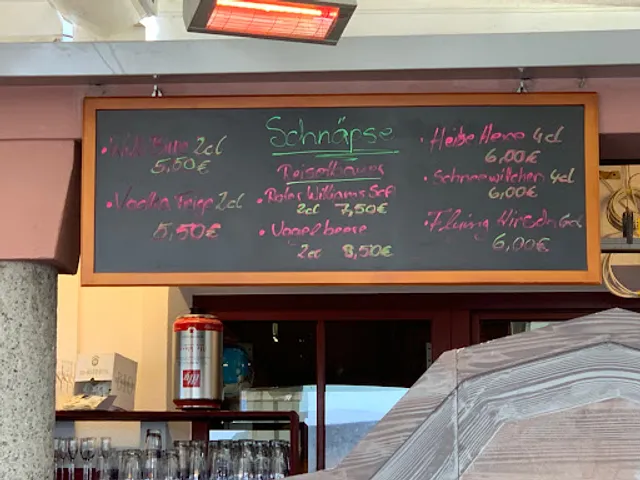 2cl
5,50€
• Vodka Feige 2cl
5,50€
Schnäpse
Reisetbauer
• Roter Williams Saft
2cl 7,50€
• Vogelbeere
2cl 8,50€
• Heiße Hexe 4cl
6,00€
• Schneewittchen 4cl
6,00€
• Flying Hirsch 6cl
6,00€
illy